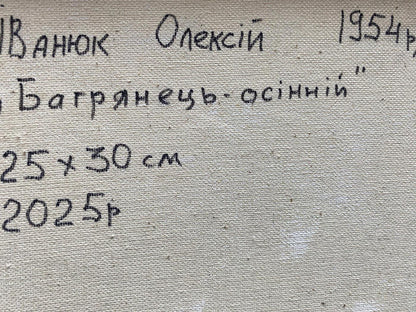 Іванюк Олексій 1954р,
„Багрянець-осінній"
25 x 30 см
2025р